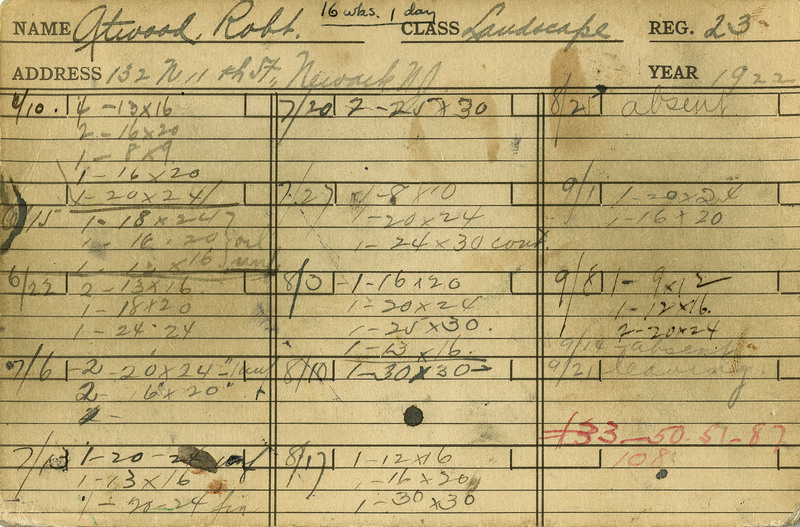 16 wks. 1 day
NAME Atwood, Robt. CLASS Landscape REG. 23
ADDRESS 132 N. 11th St., Newark NJ YEAR 1922
4-13x16
2-16x20
1-8x9
1-16x20
1-20x24
6/15 1-18x24
1-16-20
1-13x16
6/22 2-13x16
1-18x20
1-24-24
7/6 2-20x24
2-16"x20"
2-
7/13 1-20-24
1-13x16
1-20-24 fin
7/20 2-25x30
7/27 1-8x10
1-20x24
1-24x30 cont.
8/3 1-16x20
1-20x24
1-25x30.
1-13x16.
8/10 1-30x30
8/17 1-12x16
1-16x20
1-30x30
8/25 absent
9/1 1-20x24
1-16x20
9/8 1-9x12
1-12x16.
2-20x24
9/14 absent
9/21 leaving
#33-50-51-87
108